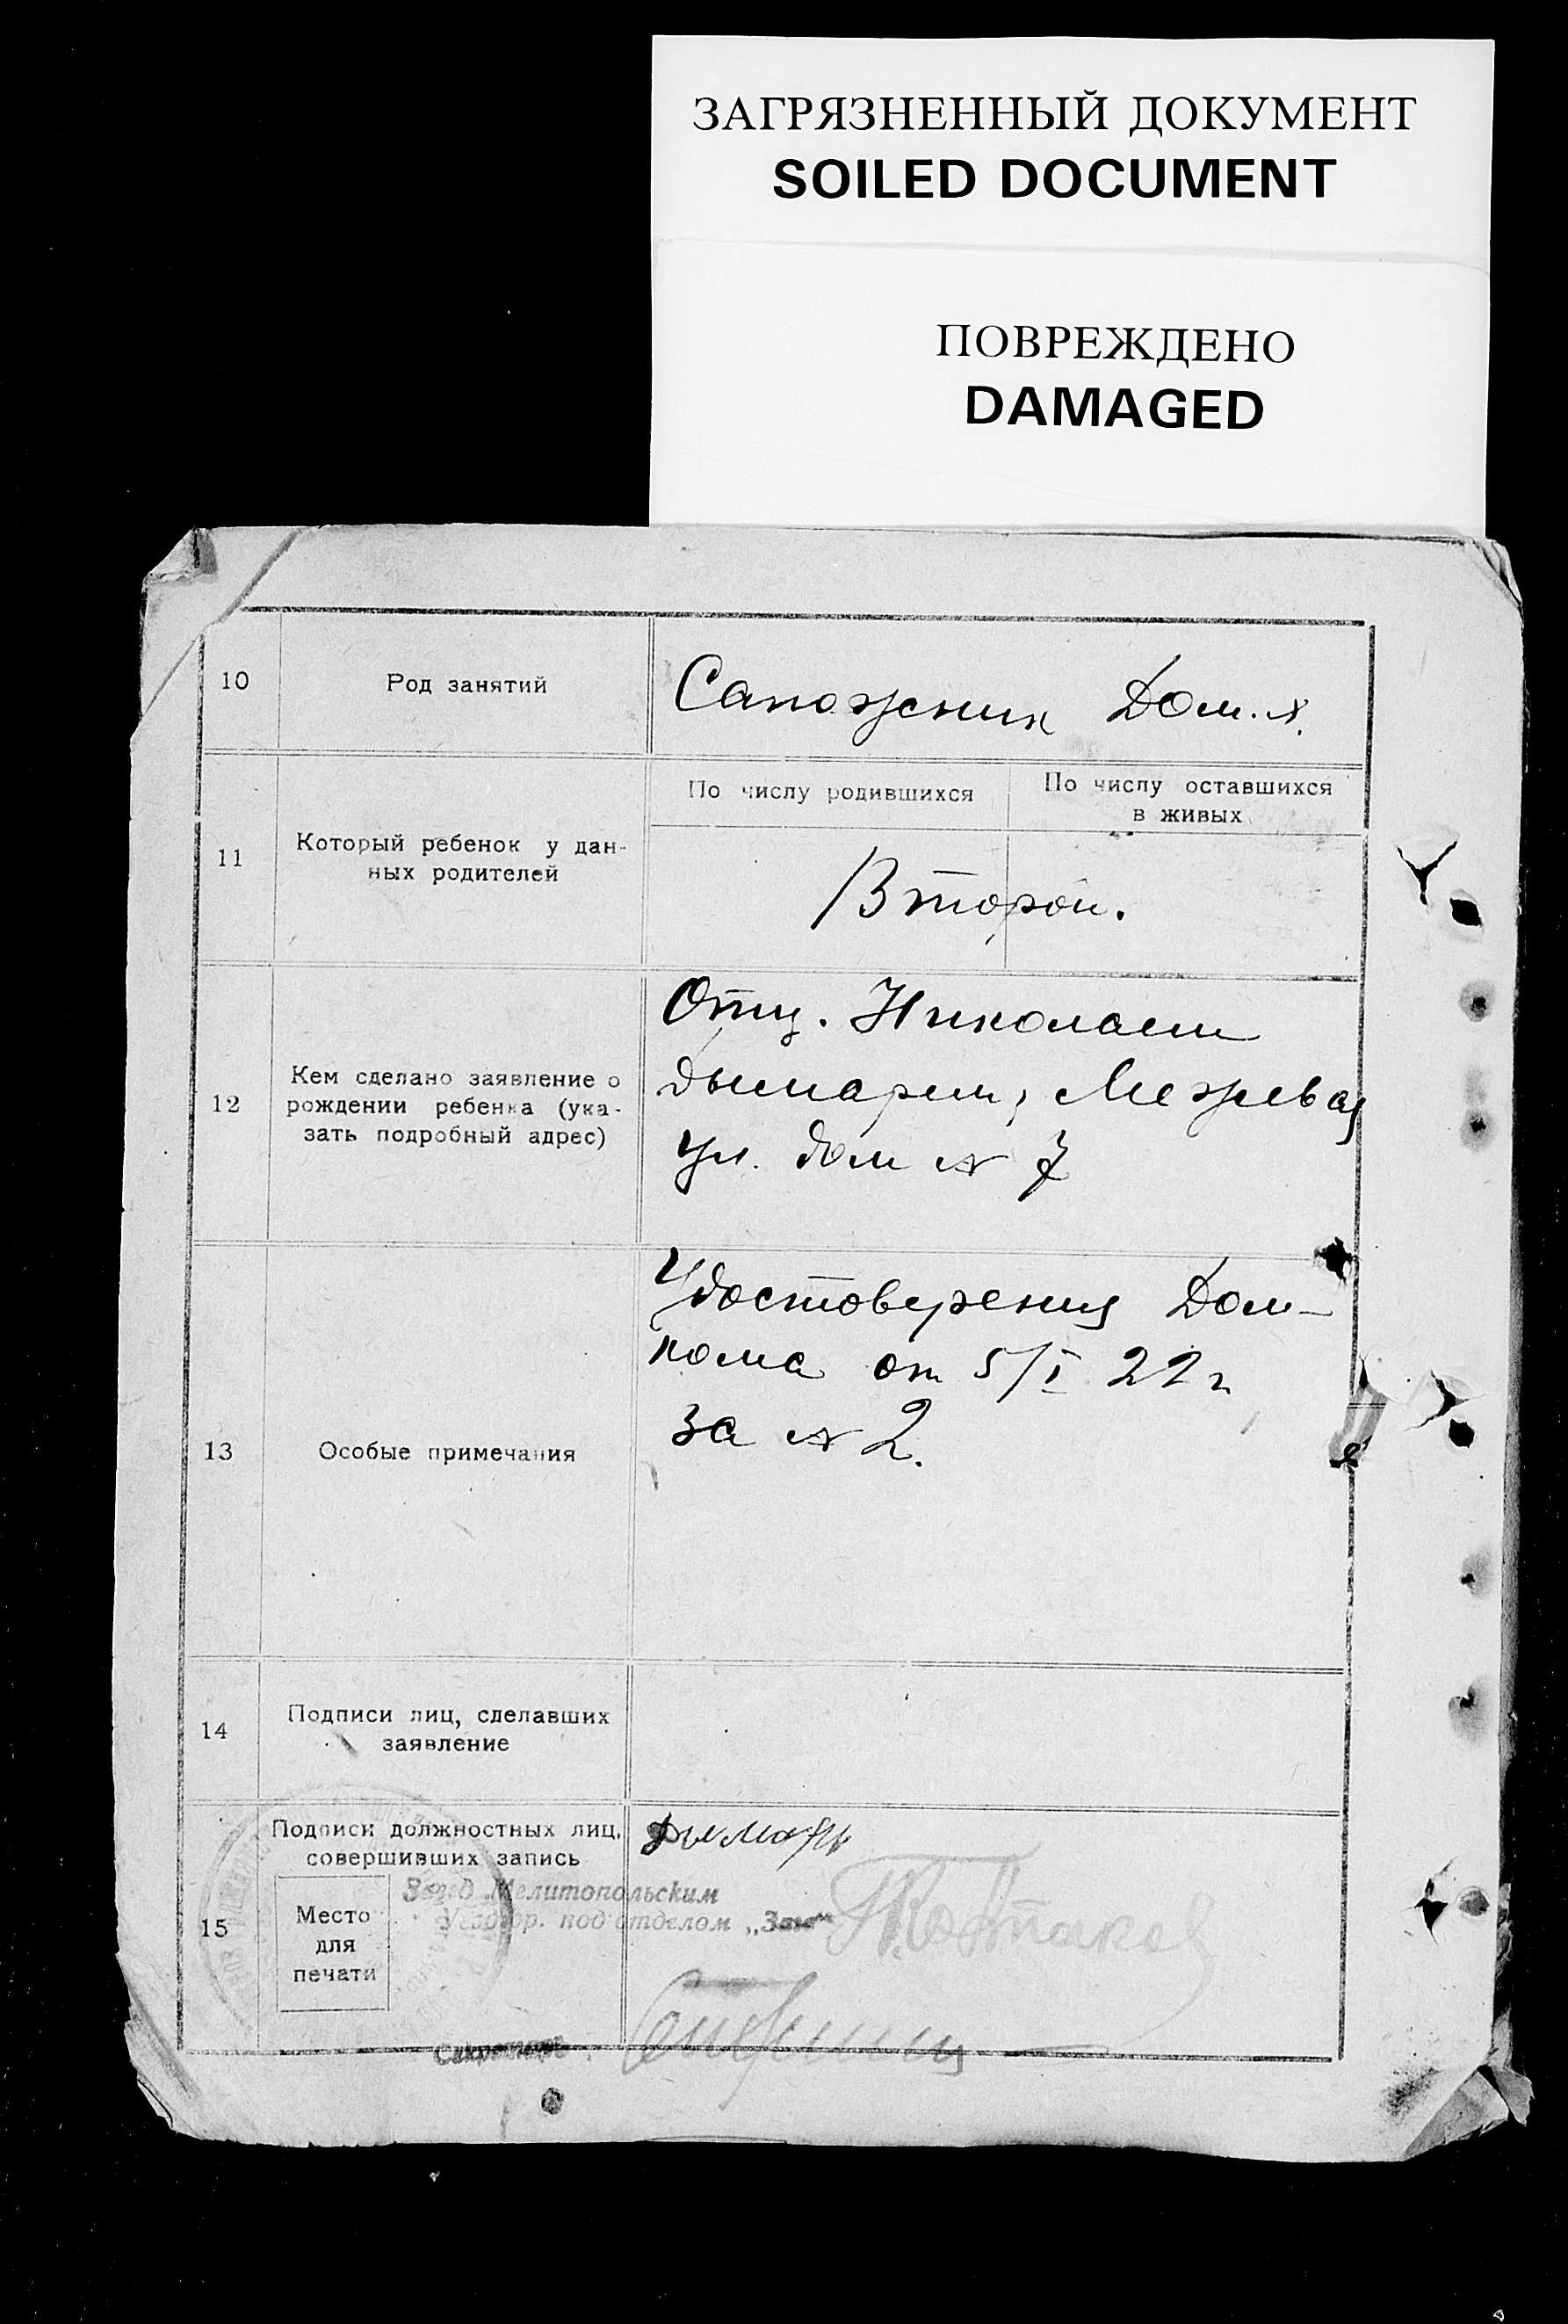 ЗАГРЯЗНЕННЫЙ ДОКУМЕНТ
SOILED DOCUMENT
ПОВРЕЖДЕНО
DAMAGED
10 Род занятий Сапожник Дом. х.
По числу родившихся По числу оставшихся
в живых
11 Который ребенок у дан-
ных родителей
Второй.
12 Кем сделано заявление о
рождении ребенка (ука-
зать подробный адрес)
Отц. Николаем
Дымарем, Межевая
ул. дом № 7
13 Особые примечания
Удостоверения Дом-
кома от 5/I 22 г
за № 2.
14 Подписи лиц, сделавших
заявление
15 Подписи должностных лиц,
совершивших запись
Дымарь
Место
для
печати
Завед. Мелитопольским
подотделом „Загс“
Секретарь